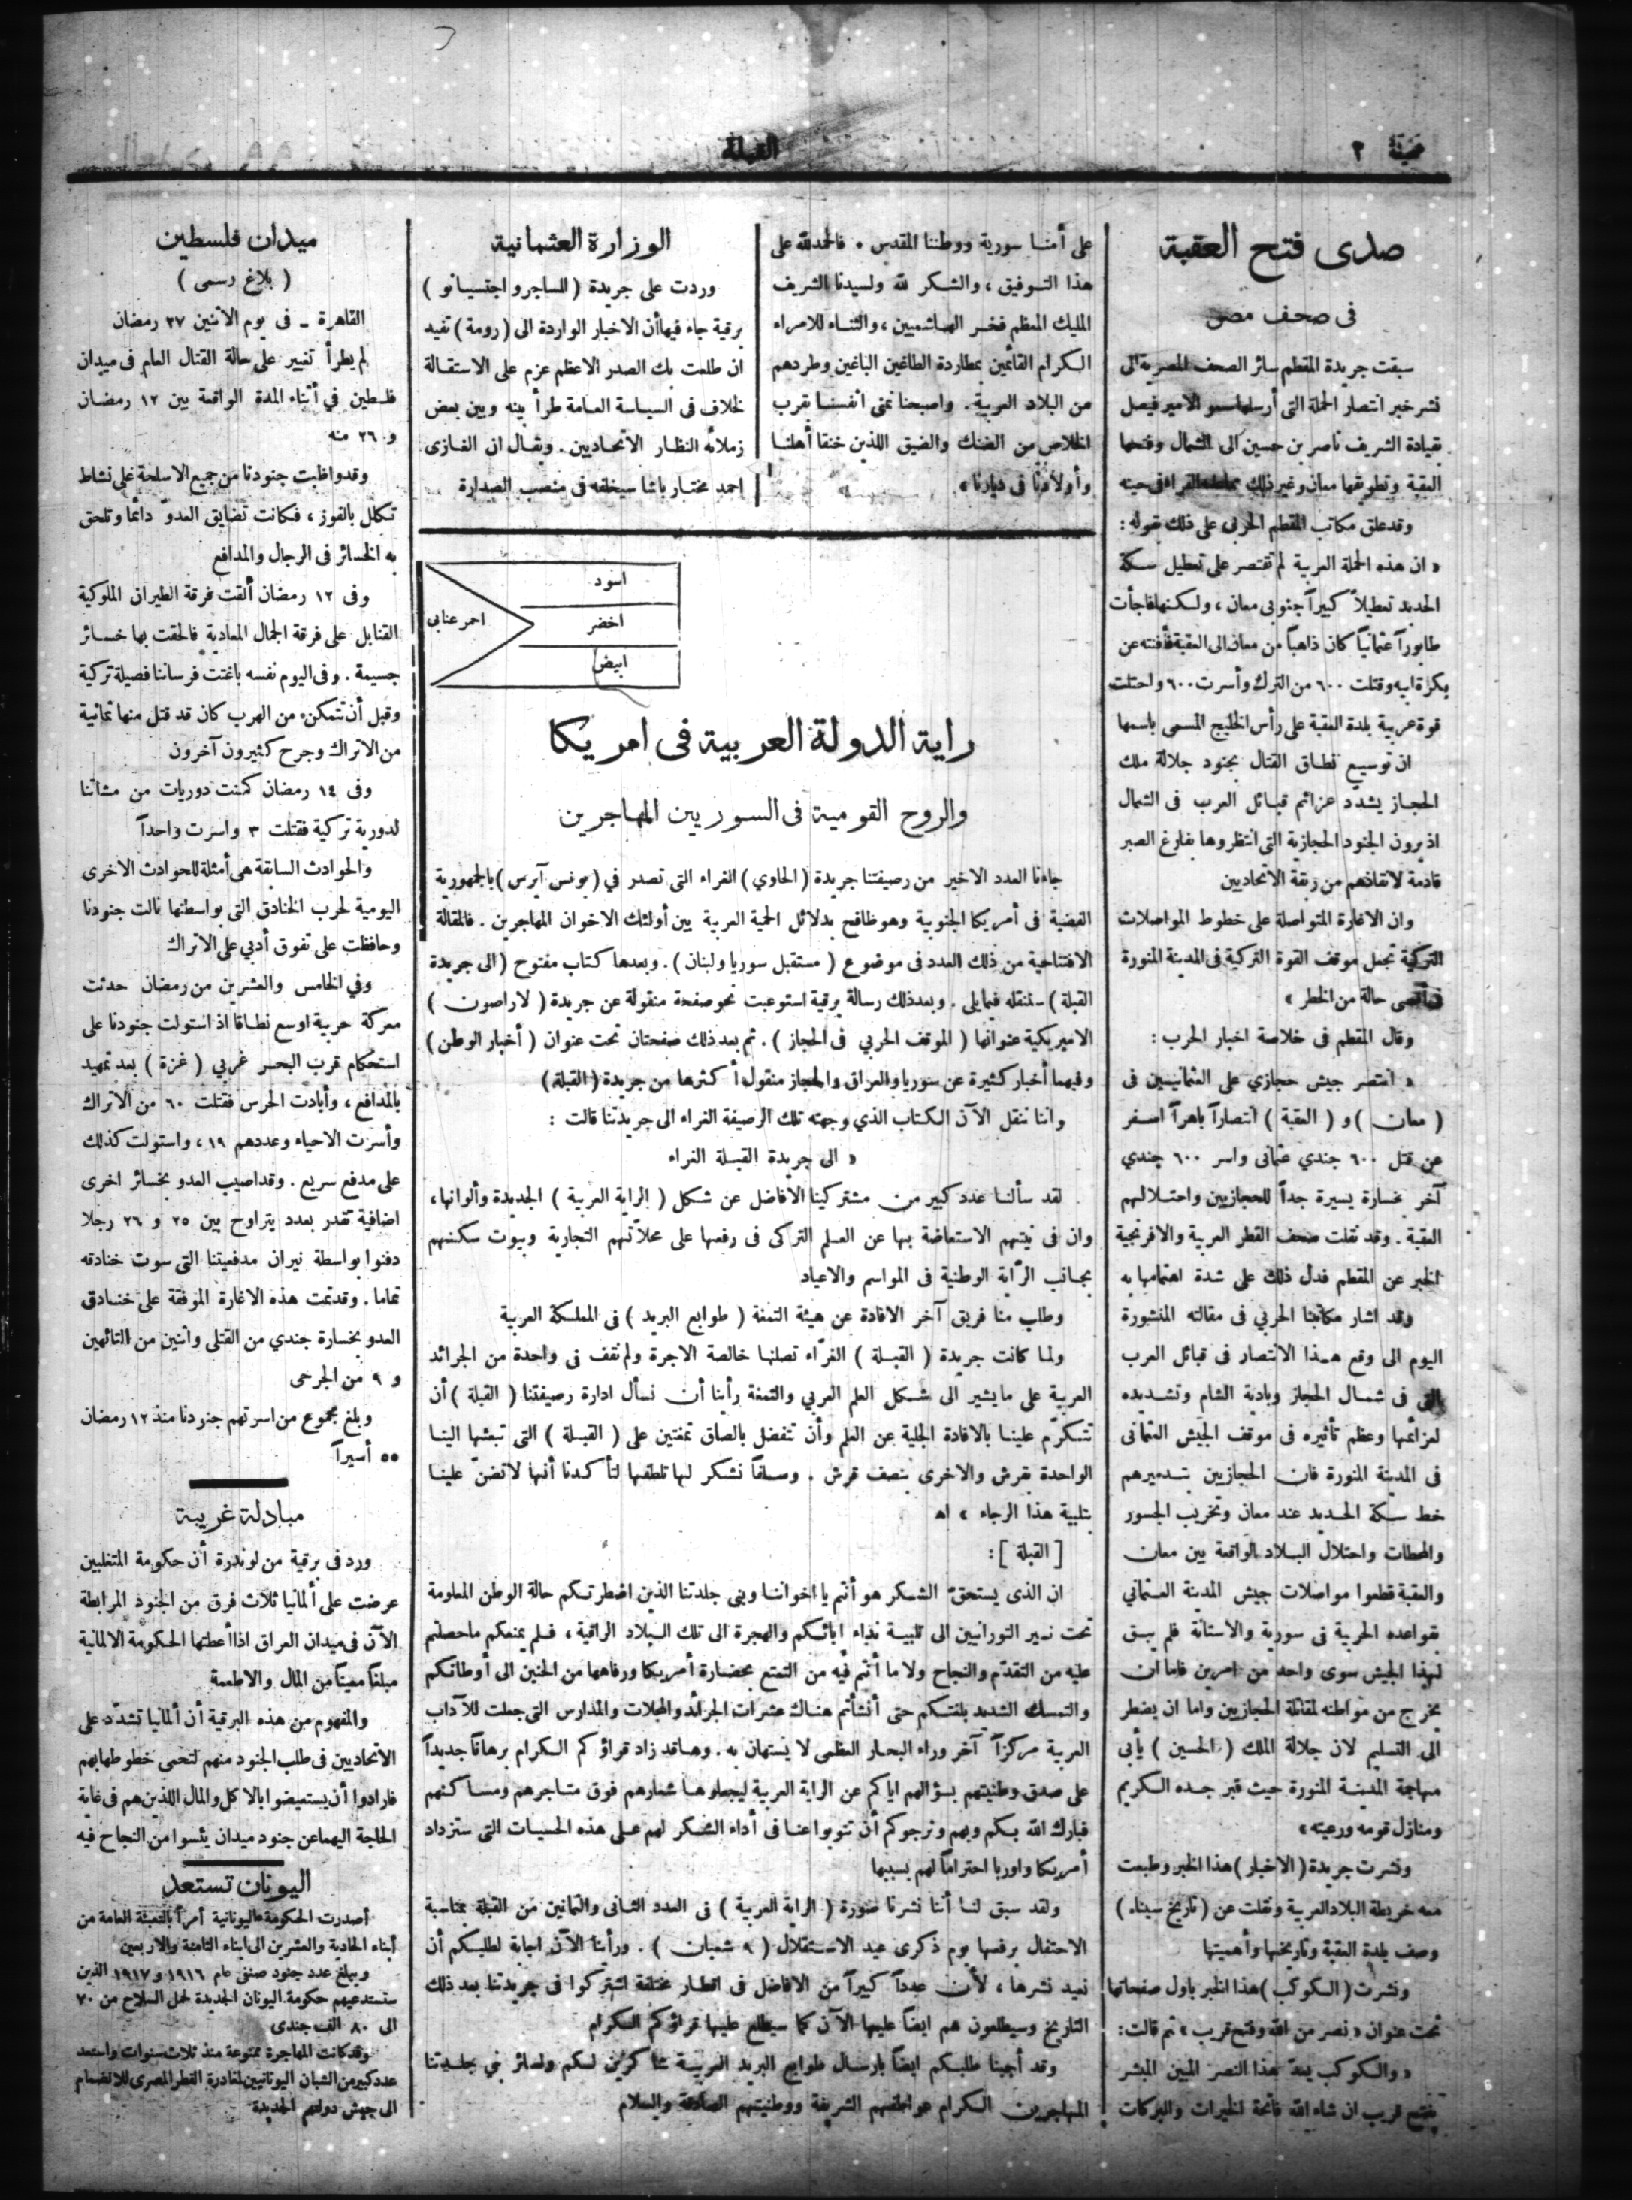 صحيفة ٢
القبلة
صدى فتح العقبة
فى صحف مصر
سبقت جريدة المقطم سائر الصحف المصرية الى
نشر خبر انتصار الحملة التى أرسلها سمو الامير فيصل
بقيادة الشريف ناصر بن حسين الى الشمال وفتحها
العقبة وتطويقها معان وغير ذلك
وقد علق مكاتب المقطم الحربى على ذلك بقوله :
« ان هذه الحملة العربية لم تقتصر على تعطيل سكة
الحديد تعطيلاً كبيراً جنوبى معان ، ولكنها فاجأت
طابوراً عثمانياً كان ذاهباً من معان الى العقبة فأفنته عن
بكرة ابيه وقتلت ٦٠٠ من الترك وأسرت ٦٠٠ واحتلت
قوة عربية بلدة العقبة على رأس الخليج المسمى باسمها
ان توسيع نطاق القتال بجنود جلالة ملك
الحجاز يشدد عزائم قبائل العرب فى الشمال
اذ يرون الجنود الحجازية التى انتظروها بفارغ الصبر
قادمة لانقاذهم من ربقة الاتحاديين
وان الاغارة المتواصلة على خطوط المواصلات
التركية تجعل موقف القوة التركية فى المدينة المنورة
فى أقصى حالة من الخطر »
وقال المقطم فى خلاصة اخبار الحرب :
« انتصر جيش حجازي على العثمانيين فى
( معان ) و ( العقبة ) انتصاراً باهراً اسفر
عن قتل ٦٠٠ جندي عثمانى واسر ٦٠٠ جندي
آخر بخسارة يسيرة جداً للحجازيين واحتلالهم
العقبة . وقد نقلت صحف القطر العربية والافرنجية
الخبر عن المقطم فدل ذلك على شدة اهتمامها به
وقد اشار مكاتبنا الحربي فى مقالته المنشورة
اليوم الى وقع هذا الانتصار فى قبائل العرب
التى فى شمال الحجاز وبادية الشام وتشديده
لعزائمها وعظم تأثيره فى موقف الجيش العثمانى
فى المدينة المنورة فان الحجازيين بتدميرهم
خط سكة الحديد عند معان وتخريب الجسور
والمحطات واحتلال البلاد الواقعة بين معان
والعقبة قطعوا مواصلات جيش المدينة العثماني
بقواعده الحربية فى سورية والاستانة فلم يبق
لهذا الجيش سوى واحد من امرين فاما ان
يخرج من مواطنه لمقاتلة الحجازيين واما ان يضطر
الى التسليم لان جلالة الملك ( الحسين ) يأبى
مهاجمة المدينة المنورة حيث قبر جده الكريم
ومنازل قومه ورعيته »
ونشرت جريدة ( الاخبار ) هذا الخبر وطبعت
معه خريطة البلاد العربية ونقلت عن ( تاريخ سيناء )
وصف بلدة العقبة وتاريخها وأهميتها
ونشرت ( الكوكب ) هذا الخبر باول صفحاتها
تحت عنوان « نصر من الله وفتح قريب » ثم قالت :
« والكوكب يعدّ هذا النصر المبين المبشر
بفتح قريب ان شاء الله فاتحة الخيرات والبركات
على أمنا سورية ووطننا المقدس . فالحمد لله على
هذا التوفيق ، والشكر لله ولسيدنا الشريف
المليك المعظم فخر الهاشميين ، والثناء للامراء
الكرام القائمين بمطاردة الطاغين الباغين وطردهم
من البلاد العربية . واصبحنا نمنى انفسنا بقرب
الخلاص من الضنك والضيق اللذين خنقا أهلنا
وأولادنا فى ديارنا »
الوزارة العثمانية
وردت على جريدة ( المساجرو اجتسيانو )
برقية جاء فيها أن الاخبار الواردة الى ( رومة ) تفيد
ان طلعت بك الصدر الاعظم عزم على الاستقالة
لخلاف فى السياسة العامة طرأ بينه وبين بعض
زملائه النظار الاتحاديين . ويقال ان الغازى
احمد مختار باشا سيخلفه فى منصب الصدارة
اسود
اخضر
ابيض
احمر عنابى
راية الدولة العربية فى امريكا
والروح القومية فى السوريين المهاجرين
جاءنا العدد الاخير من رصيفتنا جريدة ( الحاوي ) الغراء التى تصدر في ( بونس آيرس ) بالجمهورية
الفضية فى أمريكا الجنوبية وهو طافح بدلائل الحمية العربية بين أولئك الاخوان المهاجرين . فالمقالة
الافتتاحية من ذلك العدد فى موضوع ( مستقبل سوريا ولبنان ) . وبعدها كتاب مفتوح ( الى جريدة
القبلة ) سننقله فيما يلى . وبعد ذلك رسالة برقية استوعبت نحو صفحة منقولة عن جريدة ( لاراصون )
الاميريكية عنوانها ( الموقف الحربي فى الحجاز ) . ثم بعد ذلك صفحتان تحت عنوان ( أخبار الوطن )
وفيهما أخبار كثيرة عن سوريا والعراق والحجاز منقول أكثرها من جريدة ( القبلة )
واننا ننقل الآن الكتاب الذي وجهته تلك الرصيفة الغراء الى جريدتنا قالت :
« الى جريدة القبلة الغراء
لقد سألنا عدد كبير من مشتركينا الافاضل عن شكل ( الراية العربية ) الجديدة وألوانها ،
وان فى نيتهم الاستعاضة بها عن العلم التركى فى رفعها على محلاتهم التجارية وبيوت سكنهم
بجانب الرّاية الوطنية فى المواسم والاعياد
وطلب منا فريق آخر الافادة عن هيئة التمغة ( طوابع البريد ) فى المملكة العربية
ولما كانت جريدة ( القبلة ) الغرّاء تصلنا خالصة الاجرة ولم نقف فى واحدة من الجرائد
العربية على ما يشير الى شكل العلم العربي والتمغة رأينا أن نسأل ادارة رصيفتنا ( القبلة ) أن
تتكرّم علينا بالافادة الجلية عن العلم وأن تتفضل بالصاق تمغتين على ( القبلة ) التى تبعثها الينا
الواحدة بقرش والاخرى بنصف قرش . وسلفاً نشكر لها تلطفها لتأكدنا أنها لا تضنّ علينا
بتلبية هذا الرجاء » اه
[ القبلة ] :
ان الذى يستحقّ الشكر هو أنتم يا اخواننا وبنى جلدتنا الذين اضطرتكم حالة الوطن المعلومة
تحت نير التورانيين الى تلبية نداء ابائكم والهجرة الى تلك البلاد الراقية ، فلم يمنعكم ما حصلتم
عليه من التقدّم والنجاح ولا ما أنتم فيه من التمتع بحضارة أمريكا ورفاهها من الحنين الى أوطانكم
والتمسك الشديد بلغتكم حتى أنشأتم هناك عشرات الجرائد والمجلات والمدارس التى جعلت للآداب
العربية مركزاً آخر وراء البحار العظمى لا يستهان به . وها قد زاد قراؤكم الكرام برهاناً جديداً
على صدق وطنيتهم بسؤالهم اياكم عن الراية العربية ليجعلوها شعارهم فوق متاجرهم ومساكنهم
فبارك الله بكم وبهم ونرجوكم أن تنوبوا عنا فى أداء الشكر لهم على هذه الحسيات التى ستزداد
أمريكا واوربا احتراماً لهم بسببها
ولقد سبق لنا أننا نشرنا صورة ( الراية العربية ) فى العدد الثانى والثمانين من القبلة بمناسبة
الاحتفال برفعها يوم ذكرى عيد الاستقلال ( ٩ شعبان ) . ورأينا الآن اجابة لطلبكم أن
نعيد نشرها ، لأن عدداً كبيراً من الافاضل فى اقطار مختلفة اشتركوا فى جريدتنا بعد ذلك
التاريخ وسيطلعون هم ايضاً عليها الآن كما سيطلع عليها قراؤكم الكرام
وقد أجبنا طلبكم ايضاً بارسال طوابع البريد العربية شاكرين لكم ولسائر بني جلدتنا
المهاجرين الكرام عواطفهم الشريفة ووطنيتهم الصادقة والسلام
ميدان فلسطين
( بلاغ رسمى )
القاهرة ـ فى يوم الاثنين ٢٧ رمضان
لم يطرأ تغيير على حالة القتال العام فى ميدان
فلسطين في أثناء المدة الواقعة بين ١٢ رمضان
و ٢٦ منه
وقد واظبت جنودنا من جميع الاسلحة على نشاط
تكلل بالفوز ، فكانت تضايق العدوّ دائماً وتلحق
به الخسائر فى الرجال والمدافع
وفى ١٢ رمضان ألقت فرقة الطيران الملوكية
القنابل على فرقة الجمال المعادية فالحقت بها خسائر
جسيمة . وفى اليوم نفسه باغتت فرساننا فصيلة تركية
وقبل أن تتمكن من الهرب كان قد قتل منها ثمانية
من الاتراك وجرح كثيرون آخرون
وفى ١٤ رمضان كمنت دوريات من مشاتنا
لدورية تركية فقتلت ٣ واسرت واحداً
والحوادث السابقة هى أمثلة للحوادث الاخرى
اليومية لحرب الخنادق التى بواسطتها نالت جنودنا
وحافظت على تفوق أدبي على الاتراك
وفي الخامس والعشرين من رمضان حدثت
معركة حربية اوسع نطاقا اذ استولت جنودنا على
استحكام قرب البحر غربي ( غزة ) بعد تمهيد
بالمدافع ، وأبادت الحرس فقتلت ٦٠ من الاتراك
وأسرت الاحياء وعددهم ١٩ ، واستولت كذلك
على مدفع سريع . وقد اصيب العدو بخسائر اخرى
اضافية تقدر بعدد يتراوح بين ٢٥ و ٢٦ رجلا
دفنوا بواسطة نيران مدفعيتنا التى سوت خنادقه
تماما . وقد تمت هذه الاغارة الموفقة على خنادق
العدو بخسارة جندي من القتلى واثنين من التائهين
و ٩ من الجرحى
وبلغ مجموع من اسرتهم جنودنا منذ ١٢ رمضان
٥٥ أسيراً
مبادلة غريبة
ورد فى برقية من لوندرة أن حكومة المتغلبين
عرضت على ألمانيا ثلاث فرق من الجنود المرابطة
الآن فى ميدان العراق اذا أعطتها الحكومة الالمانية
مبلغاً معيناً من المال والاطعمة
والمفهوم من هذه البرقية أن ألمانيا تشدّد على
الاتحاديين فى طلب الجنود منهم لتحمى خطوطها بهم
فارادوا أن يستعيضوا بالاكل والمال اللذين هم فى غاية
الحاجة اليهما عن جنود ميدان يئسوا من النجاح فيه
اليونان تستعد
أصدرت الحكومة اليونانية أمراً بالتعبئة العامة من
أبناء الحادية والعشرين الى ابناء الثامنة والاربعين
ويبلغ عدد جنود صنفى عام ١٩١٦ و ١٩١٧ الذين
ستستدعيهم حكومة اليونان الجديدة لحمل السلاح من ٧٠
الى ٨٠ الف جندى
وقد كانت المهاجرة ممنوعة منذ ثلاث سنوات واستعد
عدد كبير من الشبان اليونانيين لمغادرة القطر المصرى للانضمام
الى جيش دولتهم الجديدة